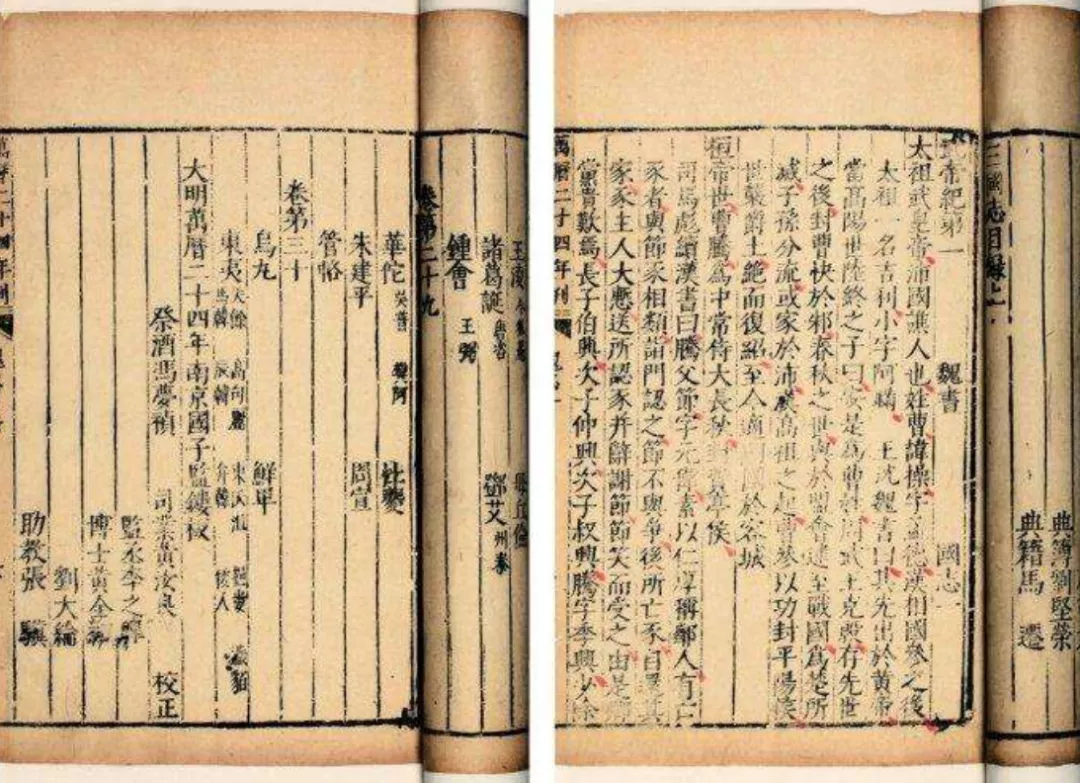 王淩 令狐愚 毌丘儉
諸葛誕 唐咨 鄧艾 州泰
鍾會 王弼
卷第二十九
華佗 吳普 樊阿 杜夔
朱建平 周宣
管輅
卷第三十
烏丸 鮮卑
東夷 夫餘 高句驪 東沃沮 挹婁 濊貊
馬韓 辰韓 弁韓 倭人
大明萬曆二十四年南京國子監鏤板
祭酒馮夢禎 司業黃汝良 校正
監丞李之
博士黃全
劉大綸
助教張 驥
萬曆二十四年刊
典簿劉堅榮
典籍馬 遷
三國志目録上
武帝紀第一 魏書 國志一
太祖武皇帝沛國譙人也姓曹諱操字孟德漢相國參之後
太祖一名吉利小字阿瞞 王沈魏書曰其先出於黃帝
當高陽世陸終之子曰安是為曹姓周武王克殷存先世
之後封曹俠於邾春秋之世與於盟會逮至戰國為楚所
滅子孫分流或家於沛漢高祖之起曹參以功封平陽侯
世襲爵土絕而復紹至今適嗣國於容城
桓帝世曹騰為中常侍大長秋封費亭侯
司馬彪續漢書曰騰父節字元偉素以仁厚稱鄰人有亡
豕者與節豕相類詣門認之節不與爭後所亡豕自還其
家豕主人大慙送所認豕并辭謝節節笑而受之由是鄉
黨貴歎焉長子伯興次子仲興次子叔興騰字季興少除
萬曆二十四年刊